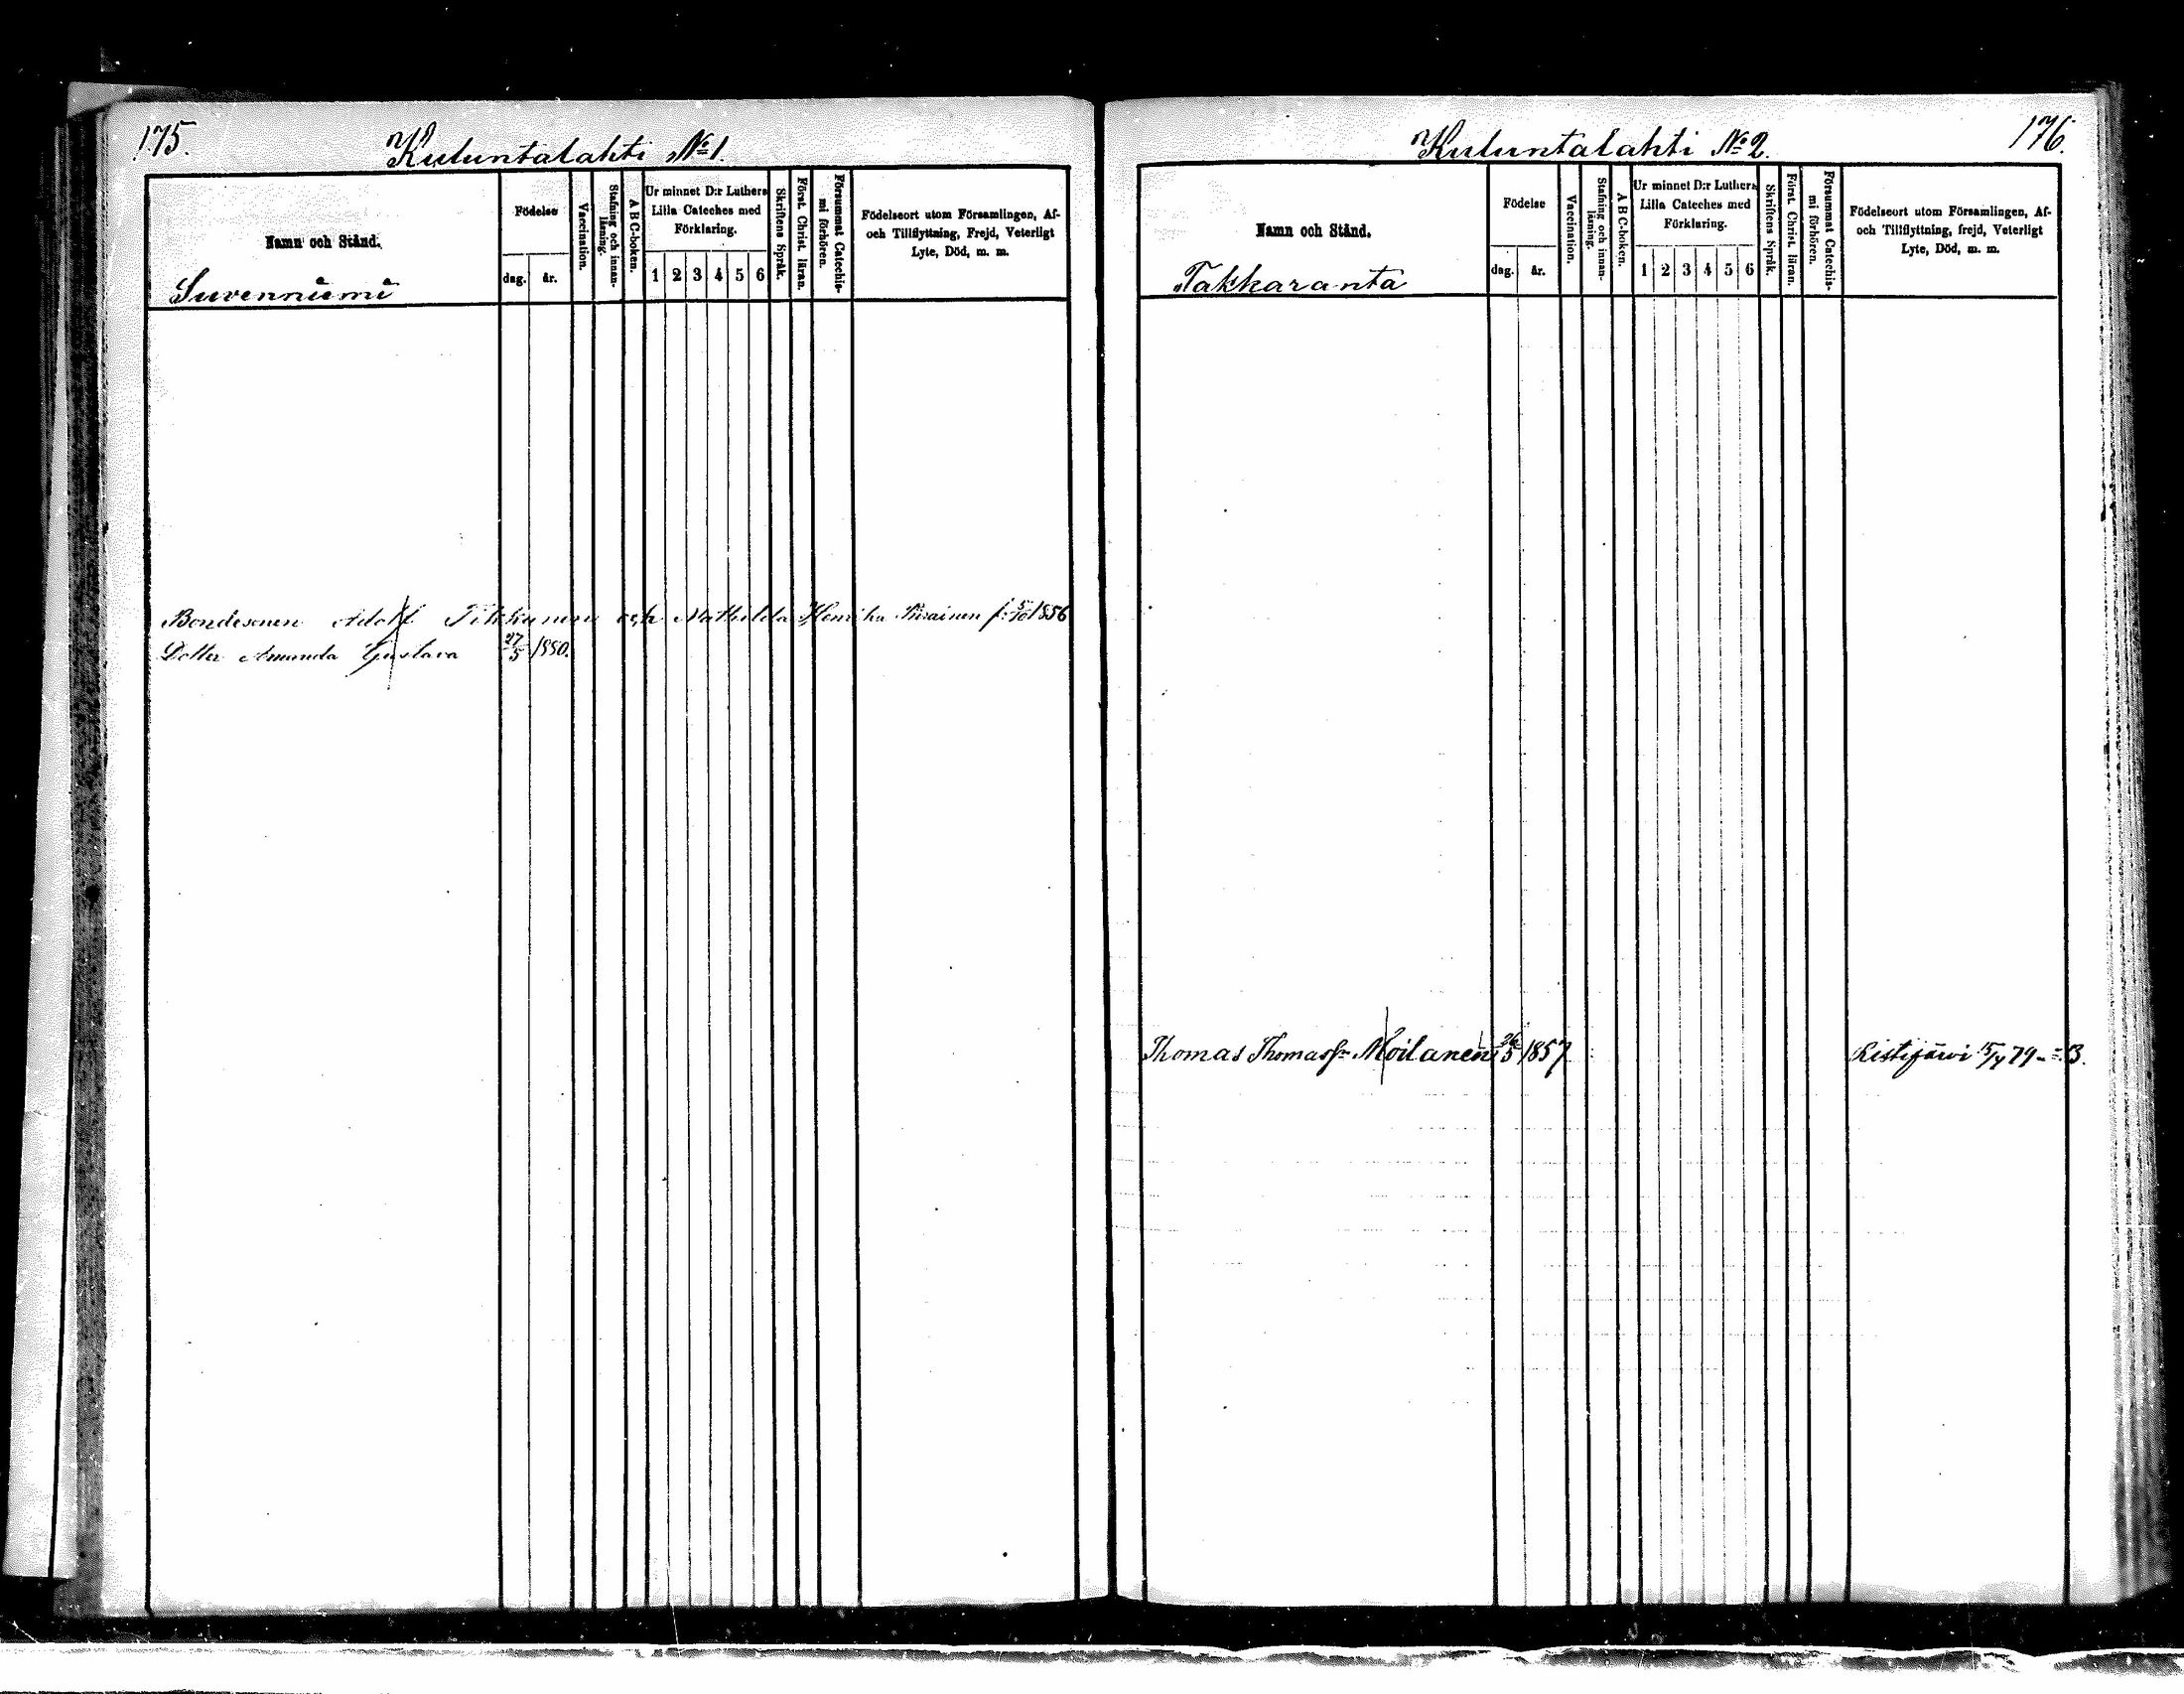 175.
Kuluntalahti No 1.
Namn och Stånd.
Suvenniemi
Födelse
dag. år.
Vaccination.
Stafning och innanläsning.
A B C-boken.
Ur minnet D:r Luthers
Lilla Cateches med
Förklaring.
1 2 3 4 5 6
Skriftens Språk.
Först. Christ. läran.
Försummat Catechismi förhören.
Födelseort utom Församlingen, Af-
och Tillflyttning, Frejd, Veterligt
Lyte, Död, m. m.
Bondesonen Adolf Tikkunen och Mathilda Henrika f. 5/10 1856
Dotter Amanda Gustava 27/5 1880.
176.
Kuluntalahti No 2.
Namn och Stånd.
Takkaranta
Födelse
dag. år.
Vaccination.
Stafning och innanläsning.
A B C-boken.
Ur minnet D:r Luthers
Lilla Cateches med
Förklaring.
1 2 3 4 5 6
Skriftens Språk.
Först. Christ. läran.
Försummat Catechismi förhören.
Födelseort utom Församlingen, Af-
och Tillflyttning, frejd, Veterligt
Lyte, Död, m. m.
Thomas Thomass: Moilanen 26/5 1857 Ristijärvi 79 B.